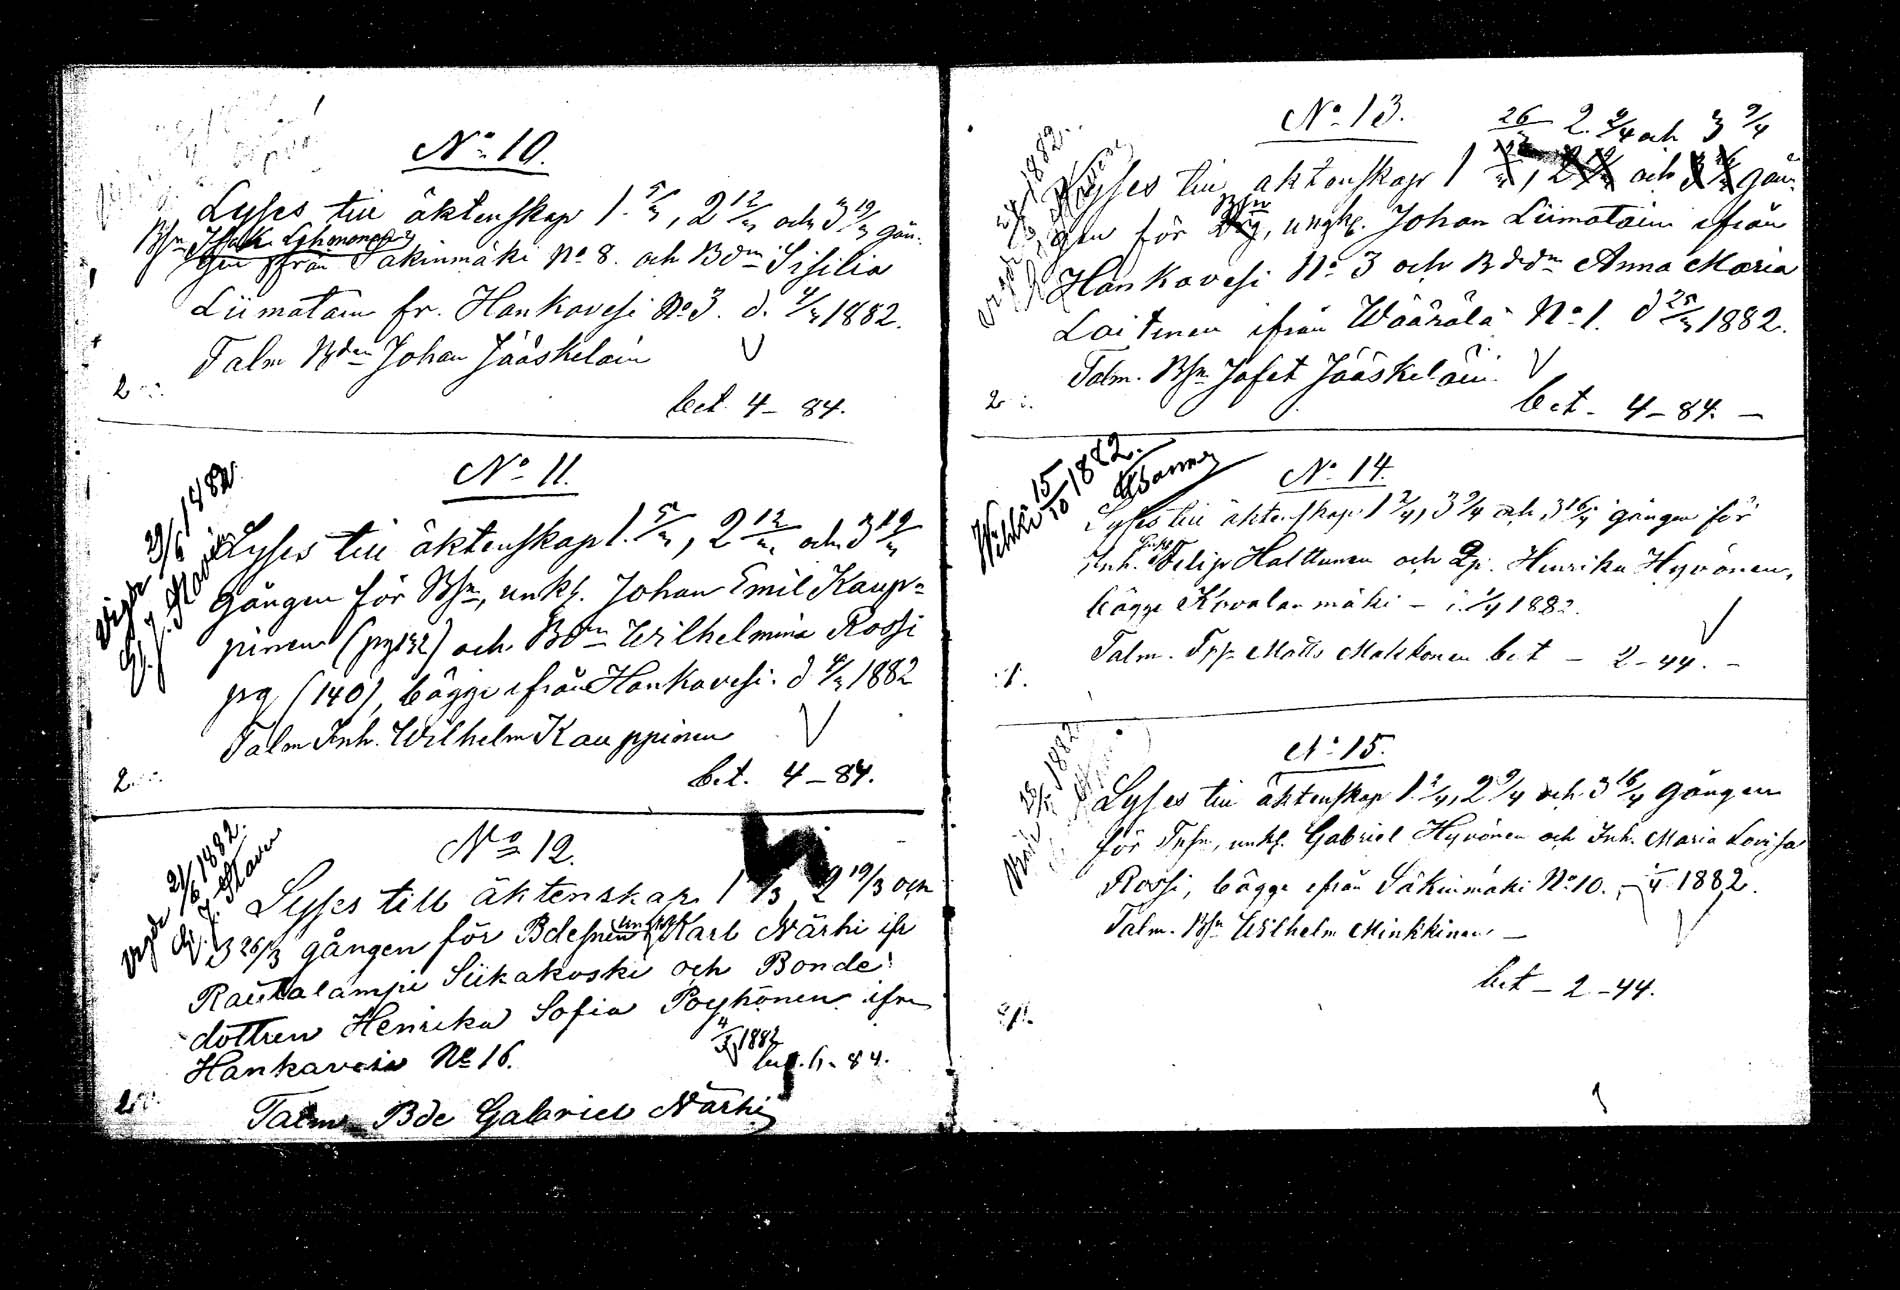 No 10.
Lyses till äktenskap 1. 5/3, 2 12/3 och 3 19/3 gån-
Bsn Isak Lehmonen
gen från Säkinmäki No 8. och Bdn Sisilia
Liimatain fr. Hankavesi No 3. d. 4/3 1882.
Talm Bden Johan Jääskeläin
bet. 4 – 84.
No 11.
Vigde 29/6 1882
Lyses till äktenskap 1. 5/3, 2 12/3 och 3 19/3
gången för Bsn, unkf. Johan Emil Kaup=
pinen (pg 132) och Bdn Wilhelmina Rossi
pg (140), bägge ifrån Hankavesi. d 4/3 1882
Talm Inh. Wilhelm Kauppinen
2
bet. 4 – 84.
No 12.
Vigde 21/6 1882.
Lyses till äktenskap 1 /3 2 19/3 och
3 26/3 gången för Bdesnen unkf Karl Närhi ifr
Rautalampi Siikakoski och Bonde
dottren Henrika Sofia Pöyhönen ifrn
Hankavesi No 16.
4/3 1882
84.
Talm Bde Gabriel Närhi
No 13.
26/3 2. 2/4 och 3 9/4
1882.
Lyses till äktenskap 1 och gån-
gen för Bsn, ungkf. Johan Liimatain ifrån
Hankavesi No 3 och Bddn Anna Maria
Laitinen ifrån Wäärälä No 1. d 25/3 1882.
Talm. Bsn Jafet Jääskeläin.
2
bet – 4 – 84. –
No 14.
Wihki 15/10 1882.
Lyses till äktenskap 1 2/4, 3 9/4 och 3 16/4 gången för
Inh. Filip Halttunen och Henrika Hyvönen,
bägge Kovalanmäki – 1/4 1882.
Talm. Matts Makkonen bet – 2 – 44. –
1.
No 15.
1882
Lyses till äktenskap 1. 2/4, 2 9/4 och 3 16/4 gången
för unkf. Gabriel Hyvönen och Inh. Maria Lovisa
Rossi, bägge ifrån Säkinmäki No 10. – 1/4 1882.
Talm. Bsn Wilhelm Minkkinen –
bet – 2 – 44.